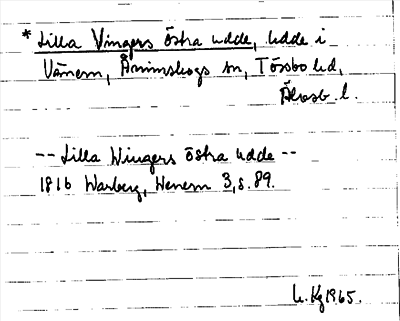 * Lilla Vingers östra udde, udde i
Vänern, Ånimskogs sn, Tössbo hd,
Älvsb. l.
-- Lilla Wingers östra udde --
1816 Warberg, Wenern 3, s. 89.
1965.